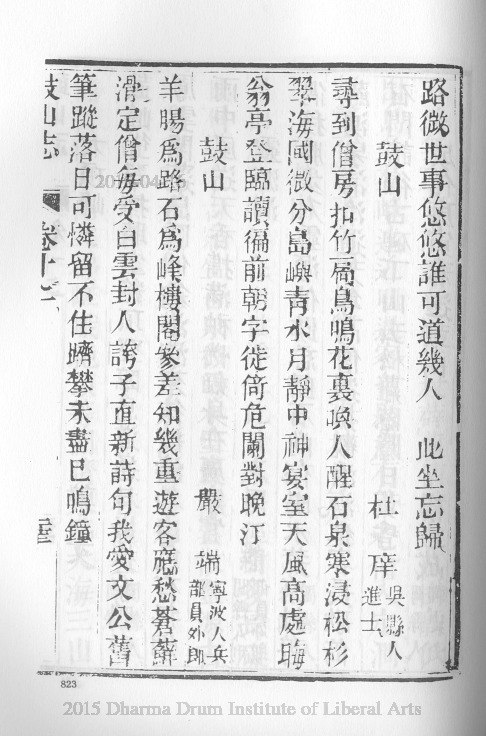 路微世事悠悠誰可道幾人 此坐忘歸
鼓山 杜庠吳縣人進士
尋到僧房扣竹扃鳥鳴花裏喚人醒石泉寒浸松杉
翠海國微分島嶼青水月靜中神宴室天風高處晦
翁亭登臨讀徧前朝字徙倚危闌對晚汀
鼓山 嚴端寧波人兵部員外郎
羊腸爲路石爲峰樓閣參差知幾重遊客應愁蒼蘚
滑定僧每受白雲封人誇子直新詩句我愛文公舊
筆蹤落日可憐留不住躋攀未盡已鳴鐘
鼓山志 卷十七
823
2015 Dharma Drum Institute of Liberal Arts